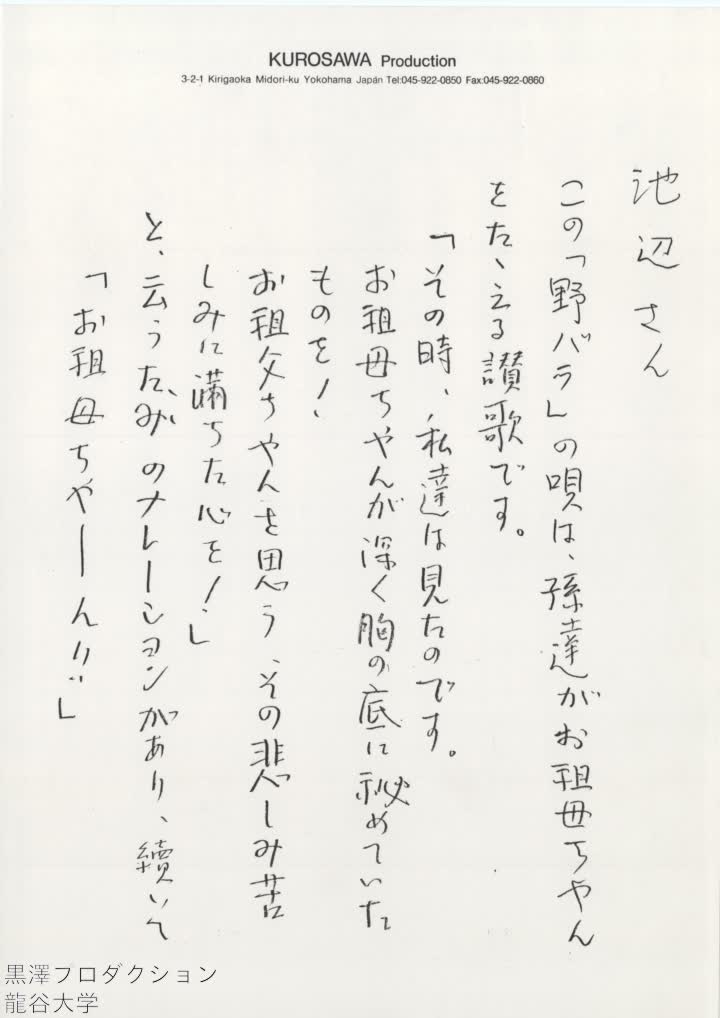 KUROSAWA Production
3-2-1 Kirigaoka Midori-ku Yokohama Japan Tel:045-922-0850 Fax:045-922-0860
池辺さん
この「野バラ」の唄は、孫達がお祖母ちゃん
をたゝえる讃歌です。
「その時、私達は見たのです。
お祖母ちゃんが深く胸の底に秘めていた
ものを!
お祖父ちゃんを思う、その悲しみ苦
しみに満ちた心を!」
と、云うたみのナレーションがあり、續いて
「お祖母ちゃーん!!」
黒澤プロダクション
龍谷大学